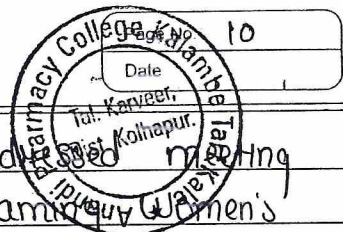 Page No 10
Date
Anandi Pharmacy College Kalambe Tarf Kale
Tal. Karveer,
Dist. Kolhapur.
meeting
Women's